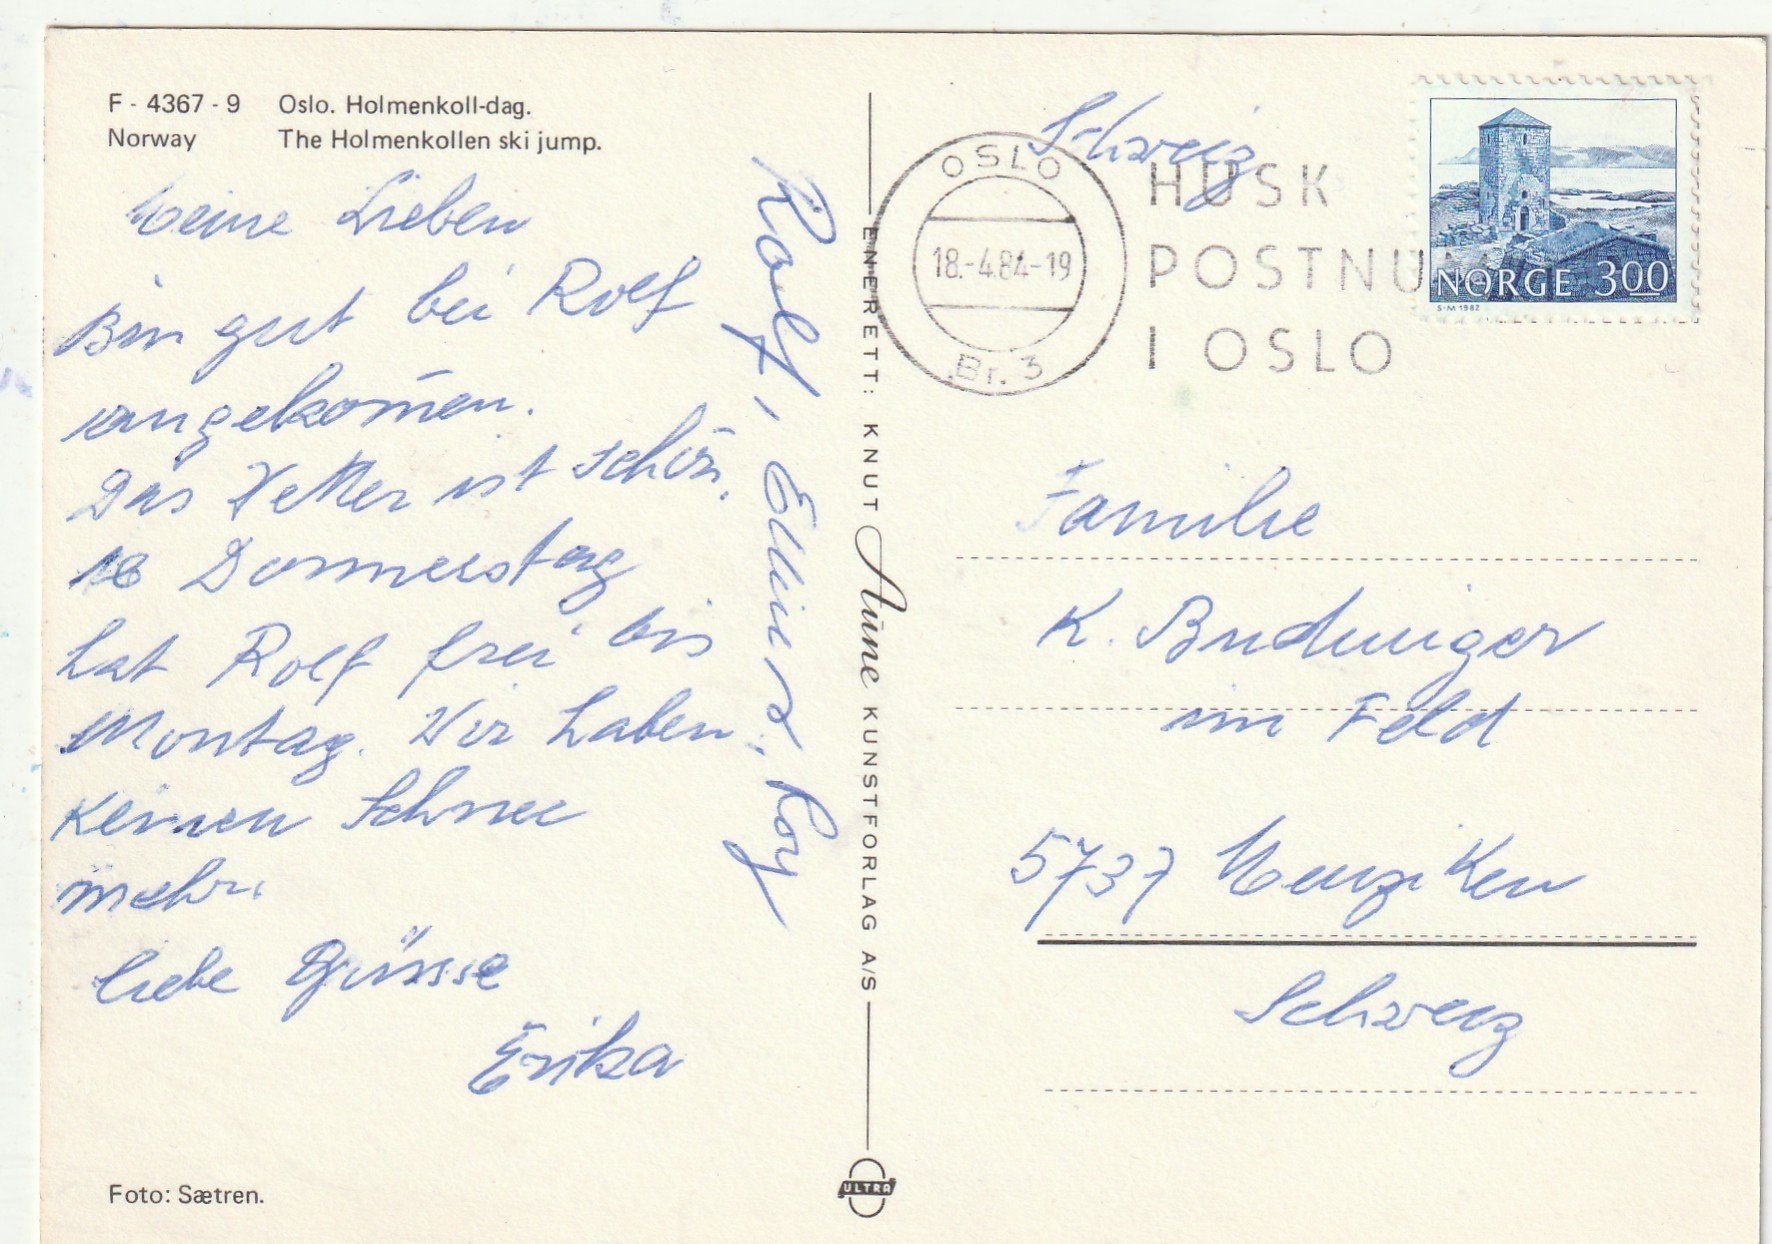 F - 4367 - 9 Oslo. Holmenkoll-dag.
Norway The Holmenkollen ski jump.
Meine Lieben
Bin gut bei Rolf
angekom̄en.
Das Wetter ist schön.
Donnerstag
hat Rolf frei bis
Montag. Wir haben
keinen Schnee
mehr.
liebe Grüsse
Erika
Rolf, Ellinor, Roy
Foto: Sætren.
ENERETT: KNUT Aune KUNSTFORLAG A/S
ULTRA
Schweiz
OSLO
18.-4.84-19
Br. 3
HUSK
POSTNU
I OSLO
NORGE 300
S·M 1982
Familie
K. Budmiger
im Feld
5737 Menziken
Schweiz